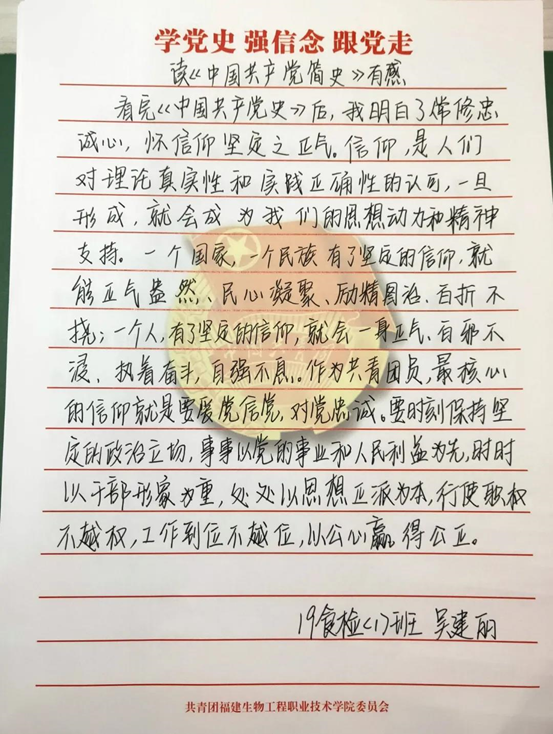 学党史 强信念 跟党走
读《中国共产党简史》有感
看完《中国共产党史》后,我明白了常修忠
诚心,怀信仰坚定之正气。信仰,是人们
对理论真实性和实践正确性的认可,一旦
形成,就会成为我们的思想动力和精神
支持。一个国家,一个民族有了坚定的信仰,就
能正气盎然、民心凝聚、励精图治、百折不
挠;一个人,有了坚定的信仰,就会一身正气、百邪不
浸、执着奋斗,自强不息。作为共青团员,最核心
的信仰就是要爱党信党,对党忠诚。要时刻保持坚
定的政治立场,事事以党的事业和人民利益为先,时时
以干部形象为重,处处以思想正派为本,行使职权
不越权,工作到位不越位,以公心赢得公正。
19食检<1>班 吴建丽
共青团福建生物工程职业技术学院委员会